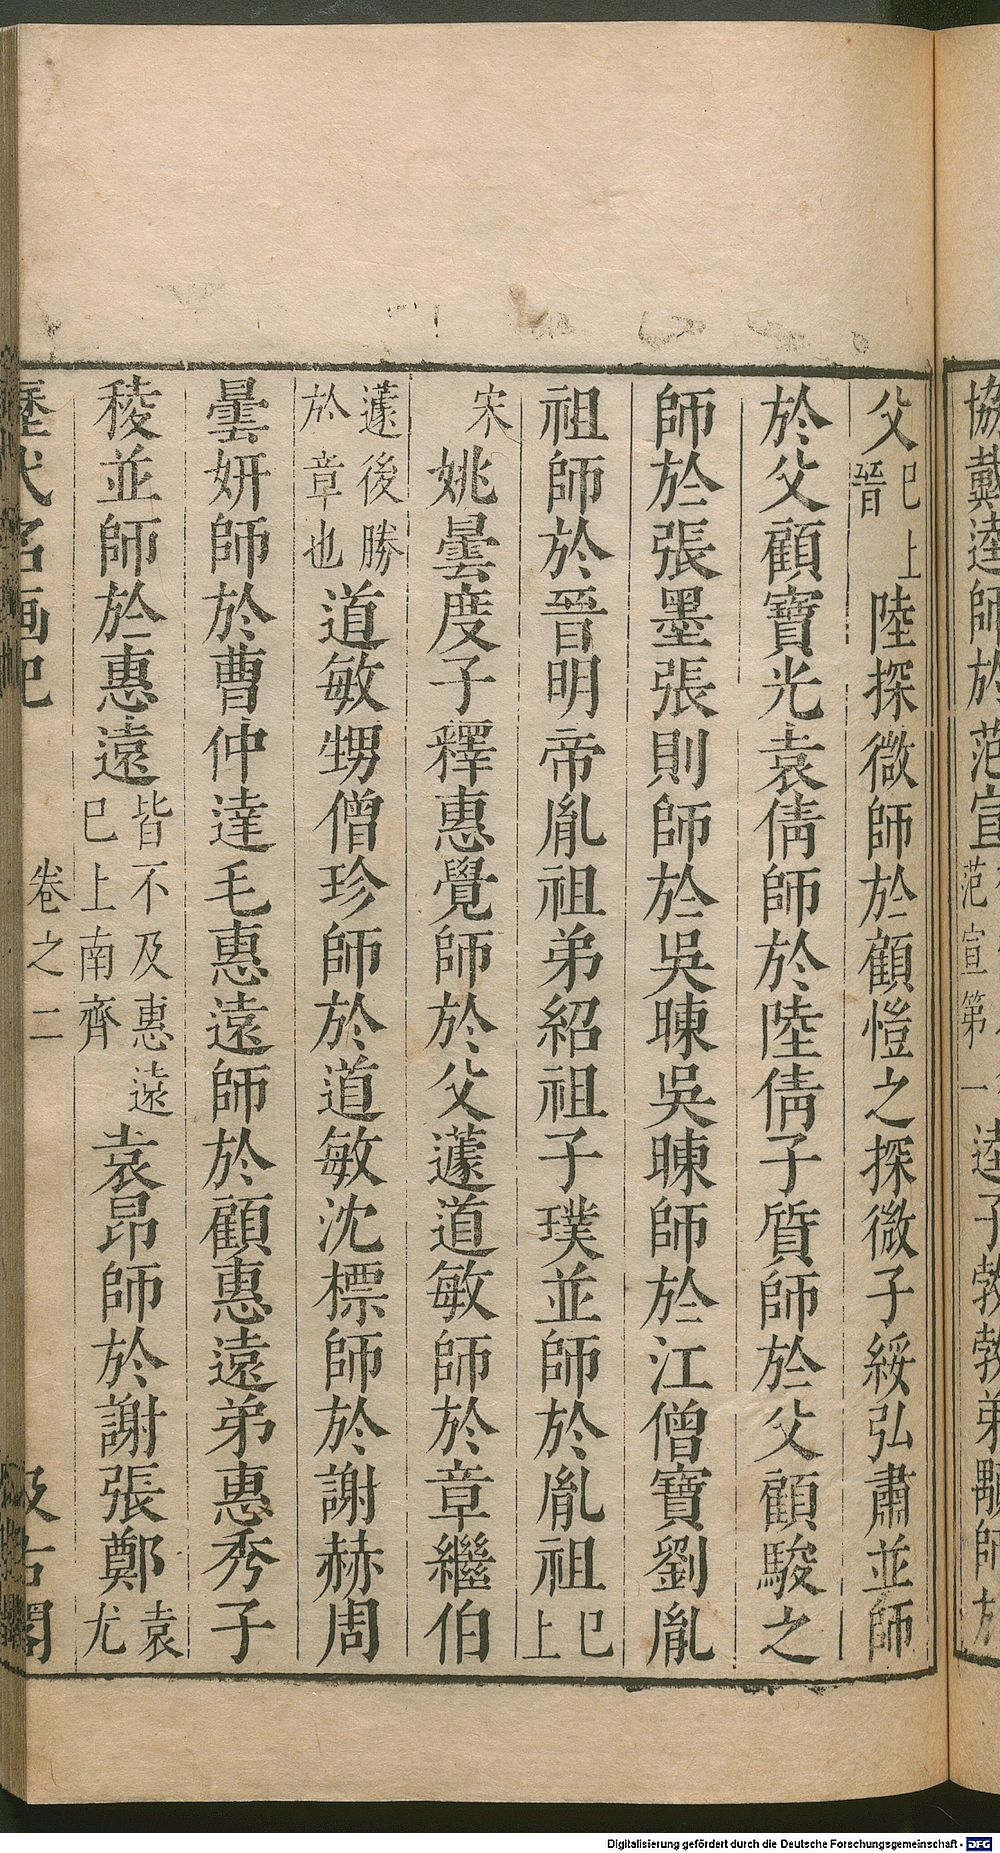 協戴逵師於范宣范宣第一逵子勃勃弟顒師於
父已上晉陸探微師於顧愷之探微子綏弘肅並師
於父顧寶光袁倩師於陸倩子質師於父顧駿之
師於張墨張則師於吳暕吳暕師於江僧寶劉胤
祖師於晉明帝胤祖弟紹祖子璞並師於胤祖已上
宋姚曇度子釋惠覺師於父蘧道敏師於章繼伯
蘧後勝於章也道敏甥僧珍師於道敏沈標師於謝赫周
曇妍師於曹仲達毛惠遠師於顧惠遠弟惠秀子
稜並師於惠遠皆不及惠遠已上南齊袁昂師於謝張鄭袁尤
歷代名画记 卷之二 汲古閣
Digitalisierung gefördert durch die Deutsche Forschungsgemeinschaft - DFG